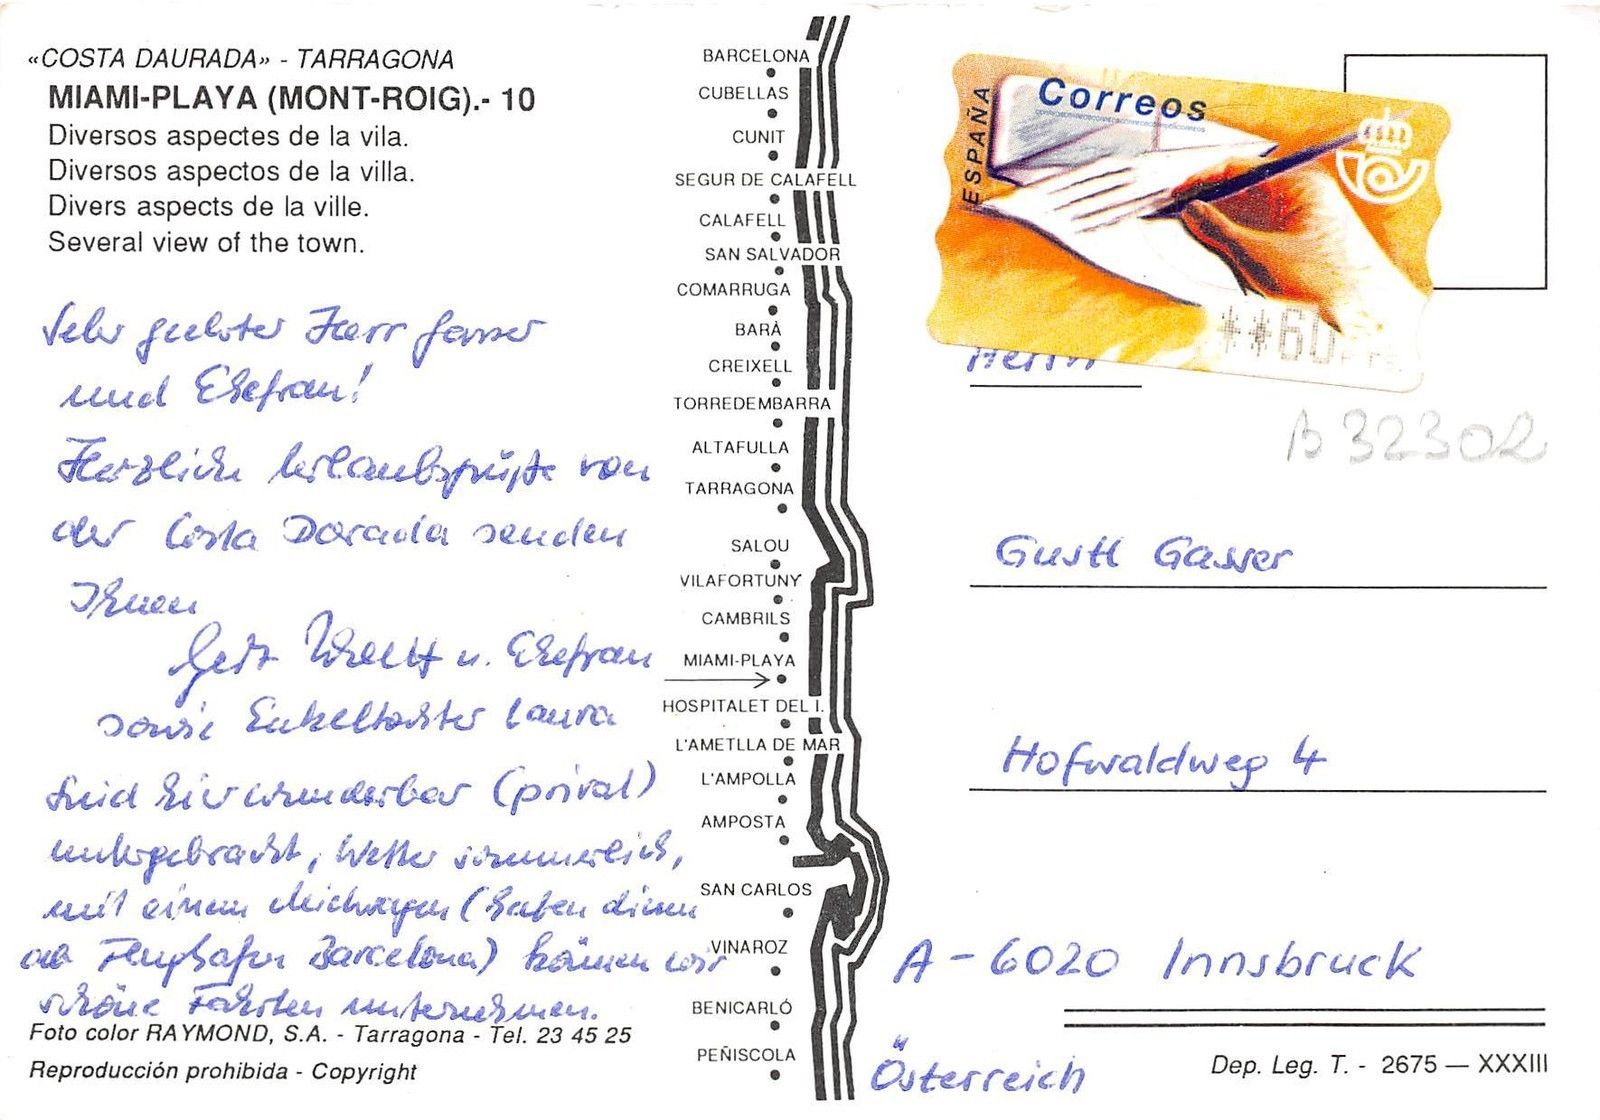 «COSTA DAURADA» - TARRAGONA
MIAMI-PLAYA (MONT-ROIG).- 10
Diversos aspectes de la vila.
Diversos aspectos de la villa.
Divers aspects de la ville.
Several view of the town.
Sehr geehrter Herr Gasser
und Ehefrau!
Herzliche Urlaubsgrüße von
der Costa Dorada senden
Ihnen
u. Ehefrau
sowie Enkeltochter Laura
Sind hier wunderbar (privat)
untergebracht, Wetter sommerlich,
mit einem Mietwagen (haben diesen
ab Flughafen Barcelona) können wir
schöne Fahrten unternehmen.
Foto color RAYMOND, S.A. - Tarragona - Tel. 23 45 25
Reproducción prohibida - Copyright
BARCELONA
CUBELLAS
CUNIT
SEGUR DE CALAFELL
CALAFELL
SAN SALVADOR
COMARRUGA
BARÀ
CREIXELL
TORREDEMBARRA
ALTAFULLA
TARRAGONA
SALOU
VILAFORTUNY
CAMBRILS
MIAMI-PLAYA
HOSPITALET DEL I.
L'AMETLLA DE MAR
L'AMPOLLA
AMPOSTA
SAN CARLOS
VINAROZ
BENICARLÓ
PEÑISCOLA
ESPAÑA
Correos
**60 Pts.
Herrn
B 32302
Gustl Gasser
Hofwaldweg 4
A-6020 Innsbruck
Österreich
Dep. Leg. T. - 2675 — XXXIII